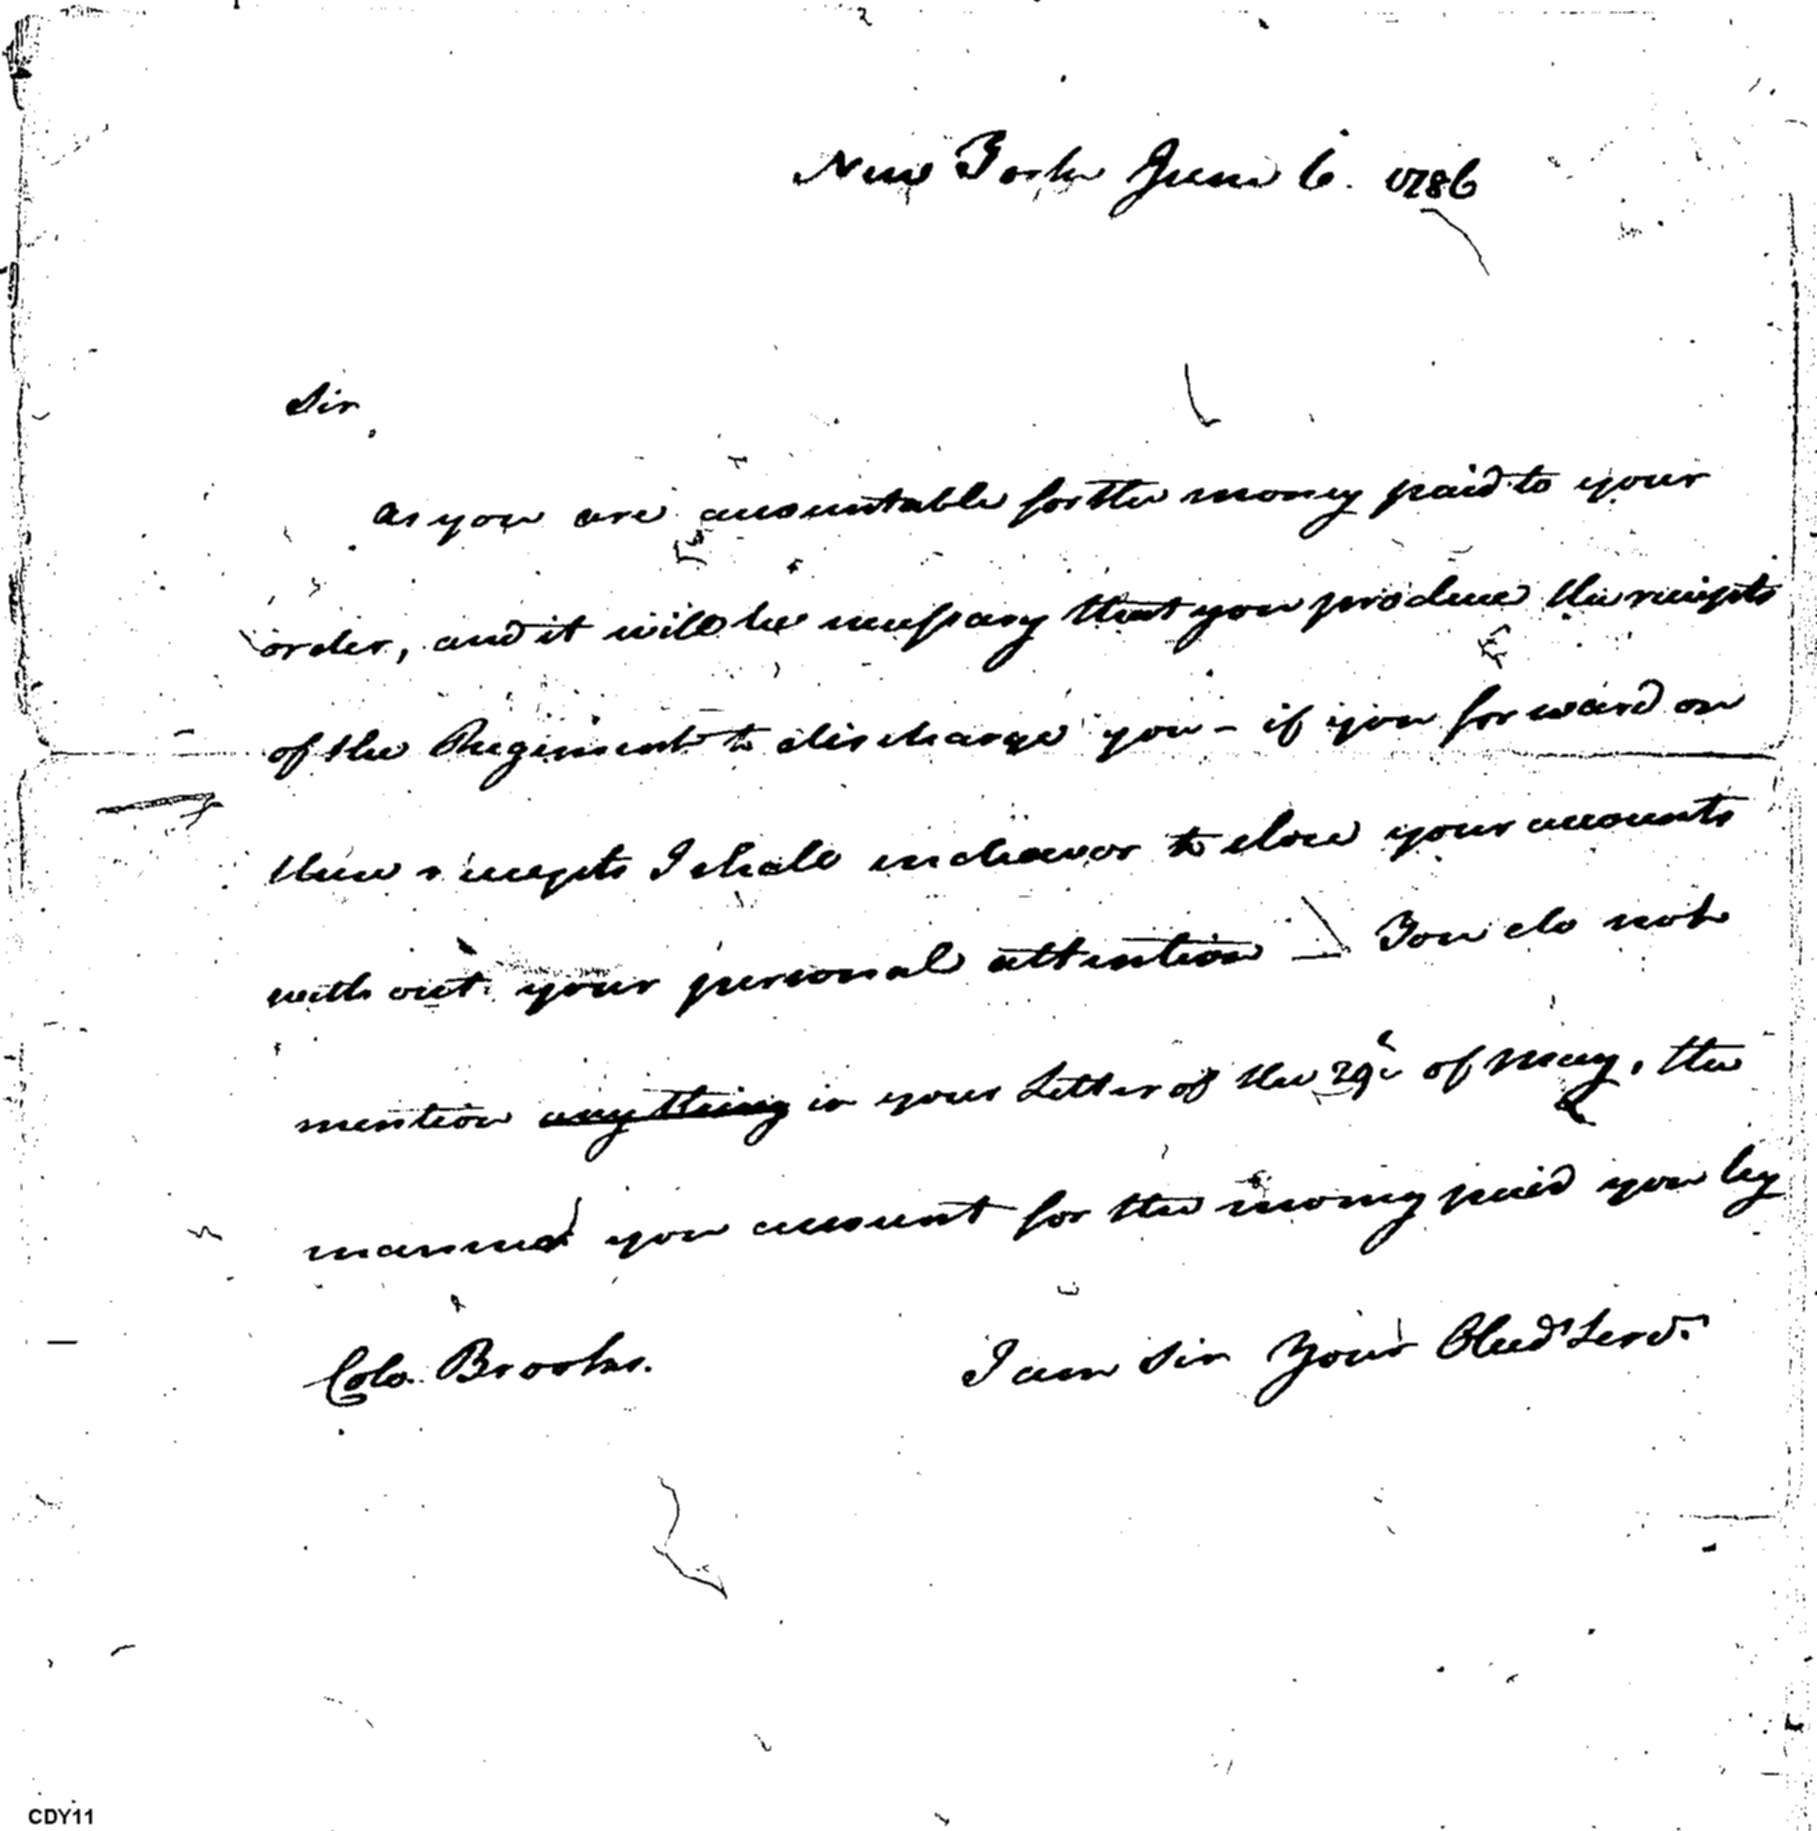 New York June 6. 1786
Sir,
As you are accountable for the money paid to your
order, and it will be necessary that you produce the receipts
of the Regiment to discharge you - if you forward on
these receipts I shall endeavor to close your accounts
without your personal attention — You do not
mention anything in your Letter of the 29th of May, the
manner you account for the money paid you by
Colo. Brooks. I am Sir Your Obedt Servt
CDY11